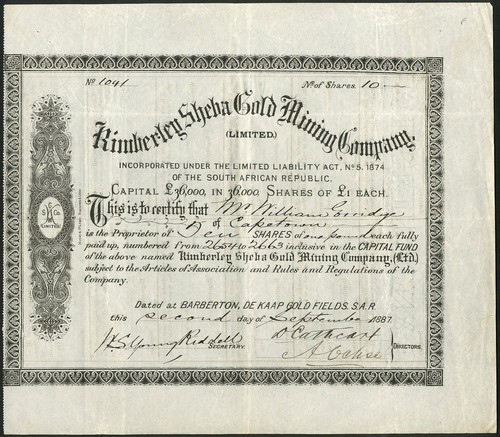 No 1041 No of Shares. 10
Kimberley Sheba Gold Mining Company,
(LIMITED.)
INCORPORATED UNDER THE LIMITED LIABILITY ACT, No 5. 1874
OF THE SOUTH AFRICAN REPUBLIC.
CAPITAL £36,000, IN 36,000 SHARES OF £1 EACH.
This is to certify that Mr William
of Capetown
is the Proprietor of Ten SHARES of one pound each fully
paid up, numbered from 2654 to 2663 inclusive in the CAPITAL FUND
of the above named Kimberley Sheba Gold Mining Company, (Ltd.)
subject to the Articles of Association and Rules and Regulations of the
Company.
Dated at BARBERTON, DE KAAP GOLD FIELDS. S.A.R.
this second day of September 1887
Young Riddell
SECRETARY.
D Cathcart
A. Ochse
DIRECTORS.
K
S G Co
M
LIMITED.